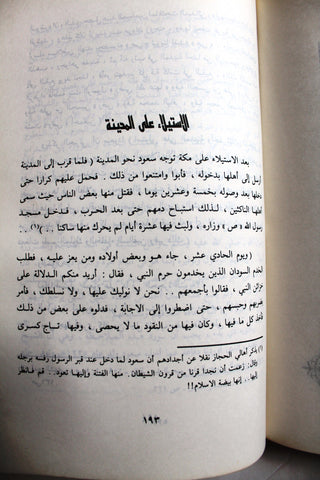 الاستيلاء على المدينة
بعد الاستيلاء على مكة توجه سعود نحو المدينة ( فلما قرب إلى المدينة
أرسل إلى أهلها بدخوله ، فأبوا وامتنعوا من ذلك . فحمل عليهم كرارا حتى
دخلها بعد وصوله بخمسة وعشرين يوما ، فقتل منها بعض الناس حيث سمى
أهلها الناكثين ، لذلك استباح دمهم حتى بعد الحرب ، فدخل مسجد
رسول الله « ص » وزاره ، ولبث فيها عشرة أيام لم يحرك منها ساكنا .. »(١) ..
( ويوم الحادي عشر ، جاء هو وبعض أولاده ومن يعز عليه ، فطلب
الخدم السودان الذين يخدمون حرم النبي ، فقال : أريد منكم الدلالة على
خزائن النبي ، فقالوا بأجمعهم .. نحن لا نوليك عليها ، ولا نسلطك ، فأمر
بضربهم وحبسهم ، حتى اضطروا إلى الاجابة ، فدلوه على بعض من ذلك
فأخذ كل ما فيها ، وكان فيها من النقود ما لا يحصى ، وفيها تاج كسرى
(١) يذكر أهالي الحجاز نقلا عن أجدادهم أن سعود لما دخل عند قبر الرسول رفسه برجله
وقال: زعمت أن نجدا قرنا من قرون الشيطان. منها الفتنة وإليها تعود.. قم فانظر
إليها.. إنها بيضة الاسلام!!
١٩٣